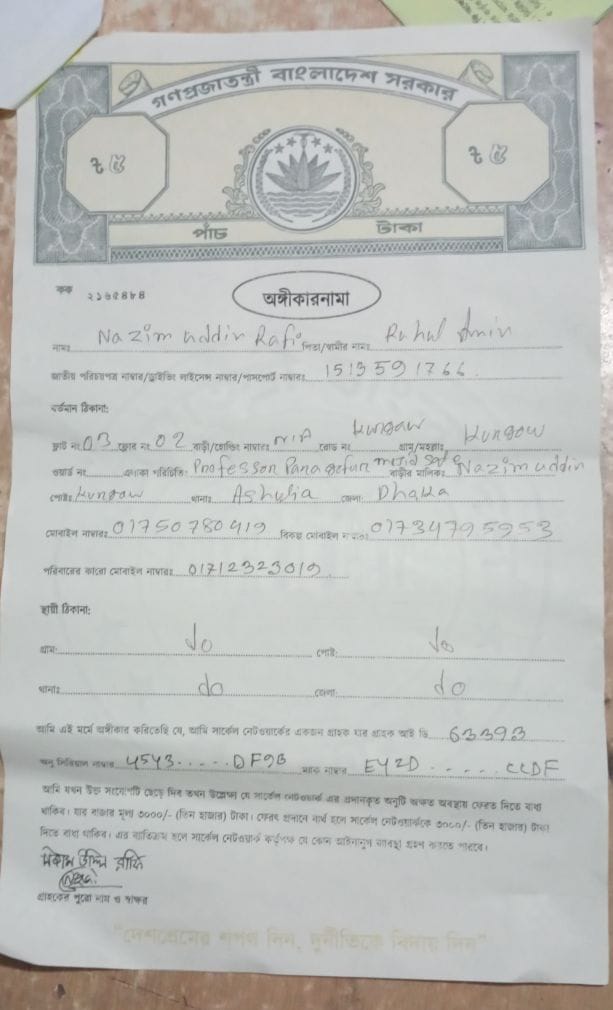 গণপ্রজাতন্ত্রী বাংলাদেশ সরকার
৳ ৫ ৳ ৫
পাঁচ টাকা
কক ২১৬৫৪৮৪
অঙ্গীকারনামা
নামঃ Nazim uddin Rafi পিতা/স্বামীর নামঃ Ruhul Amin
জাতীয় পরিচয়পত্র নাম্বার/ড্রাইভিং লাইসেন্স নাম্বার/পাসপোর্ট নাম্বারঃ 1513591766
বর্তমান ঠিকানা:
ফ্লাট নং 03 ফ্লোর নং 02 বাড়ী/হোল্ডিং নাম্বারঃ N/A রোড নং Kungow গ্রাম/মহল্লাঃ Kungow
ওয়ার্ড নং এলাকা পরিচিতিঃ Professor Para বাড়ীর মালিকঃ Nazim uddin
পোষ্টঃ Kungow থানাঃ Ashulia জেলাঃ Dhaka
মোবাইল নাম্বারঃ 01750780419 বিকল্প মোবাইল নাম্বারঃ 01734795953
পরিবারের কারো মোবাইল নাম্বারঃ 01712323019
স্থায়ী ঠিকানা:
গ্রাম: do পোষ্ট: do
থানাঃ do জেলা: do
আমি এই মর্মে অঙ্গীকার করিতেছি যে, আমি সার্কেল নেটওয়ার্কের একজন গ্রাহক যার গ্রাহক আই ডি 63393
অনু সিরিয়াল নাম্বার 4543.....DF9B ম্যাক নাম্বার EY2D.....CCDF
আমি যখন উক্ত সংযোগটি ছেড়ে দিব তখন উল্লেখ্য যে সার্কেল নেটওয়ার্ক এর প্রদানকৃত অনুটি অক্ষত অবস্থায় ফেরত দিতে বাধ্য
থাকিব। যার বাজার মূল্য ৩০০০/- (তিন হাজার) টাকা। ফেরৎ প্রদানে ব্যর্থ হলে সার্কেল নেটওয়ার্ককে ৩০০০/- (তিন হাজার) টাকা
দিতে বাধ্য থাকিব। এর ব্যতিক্রম হলে সার্কেল নেটওয়ার্ক কর্তৃপক্ষ যে কোন আইনানুগ ব্যবস্থা গ্রহন করতে পারবে।
উদ্দিন রাফি
গ্রাহকের পুরো নাম ও স্বাক্ষর
"দেশপ্রেমের শপথ নিন, দুর্নীতিকে বিদায় দিন"